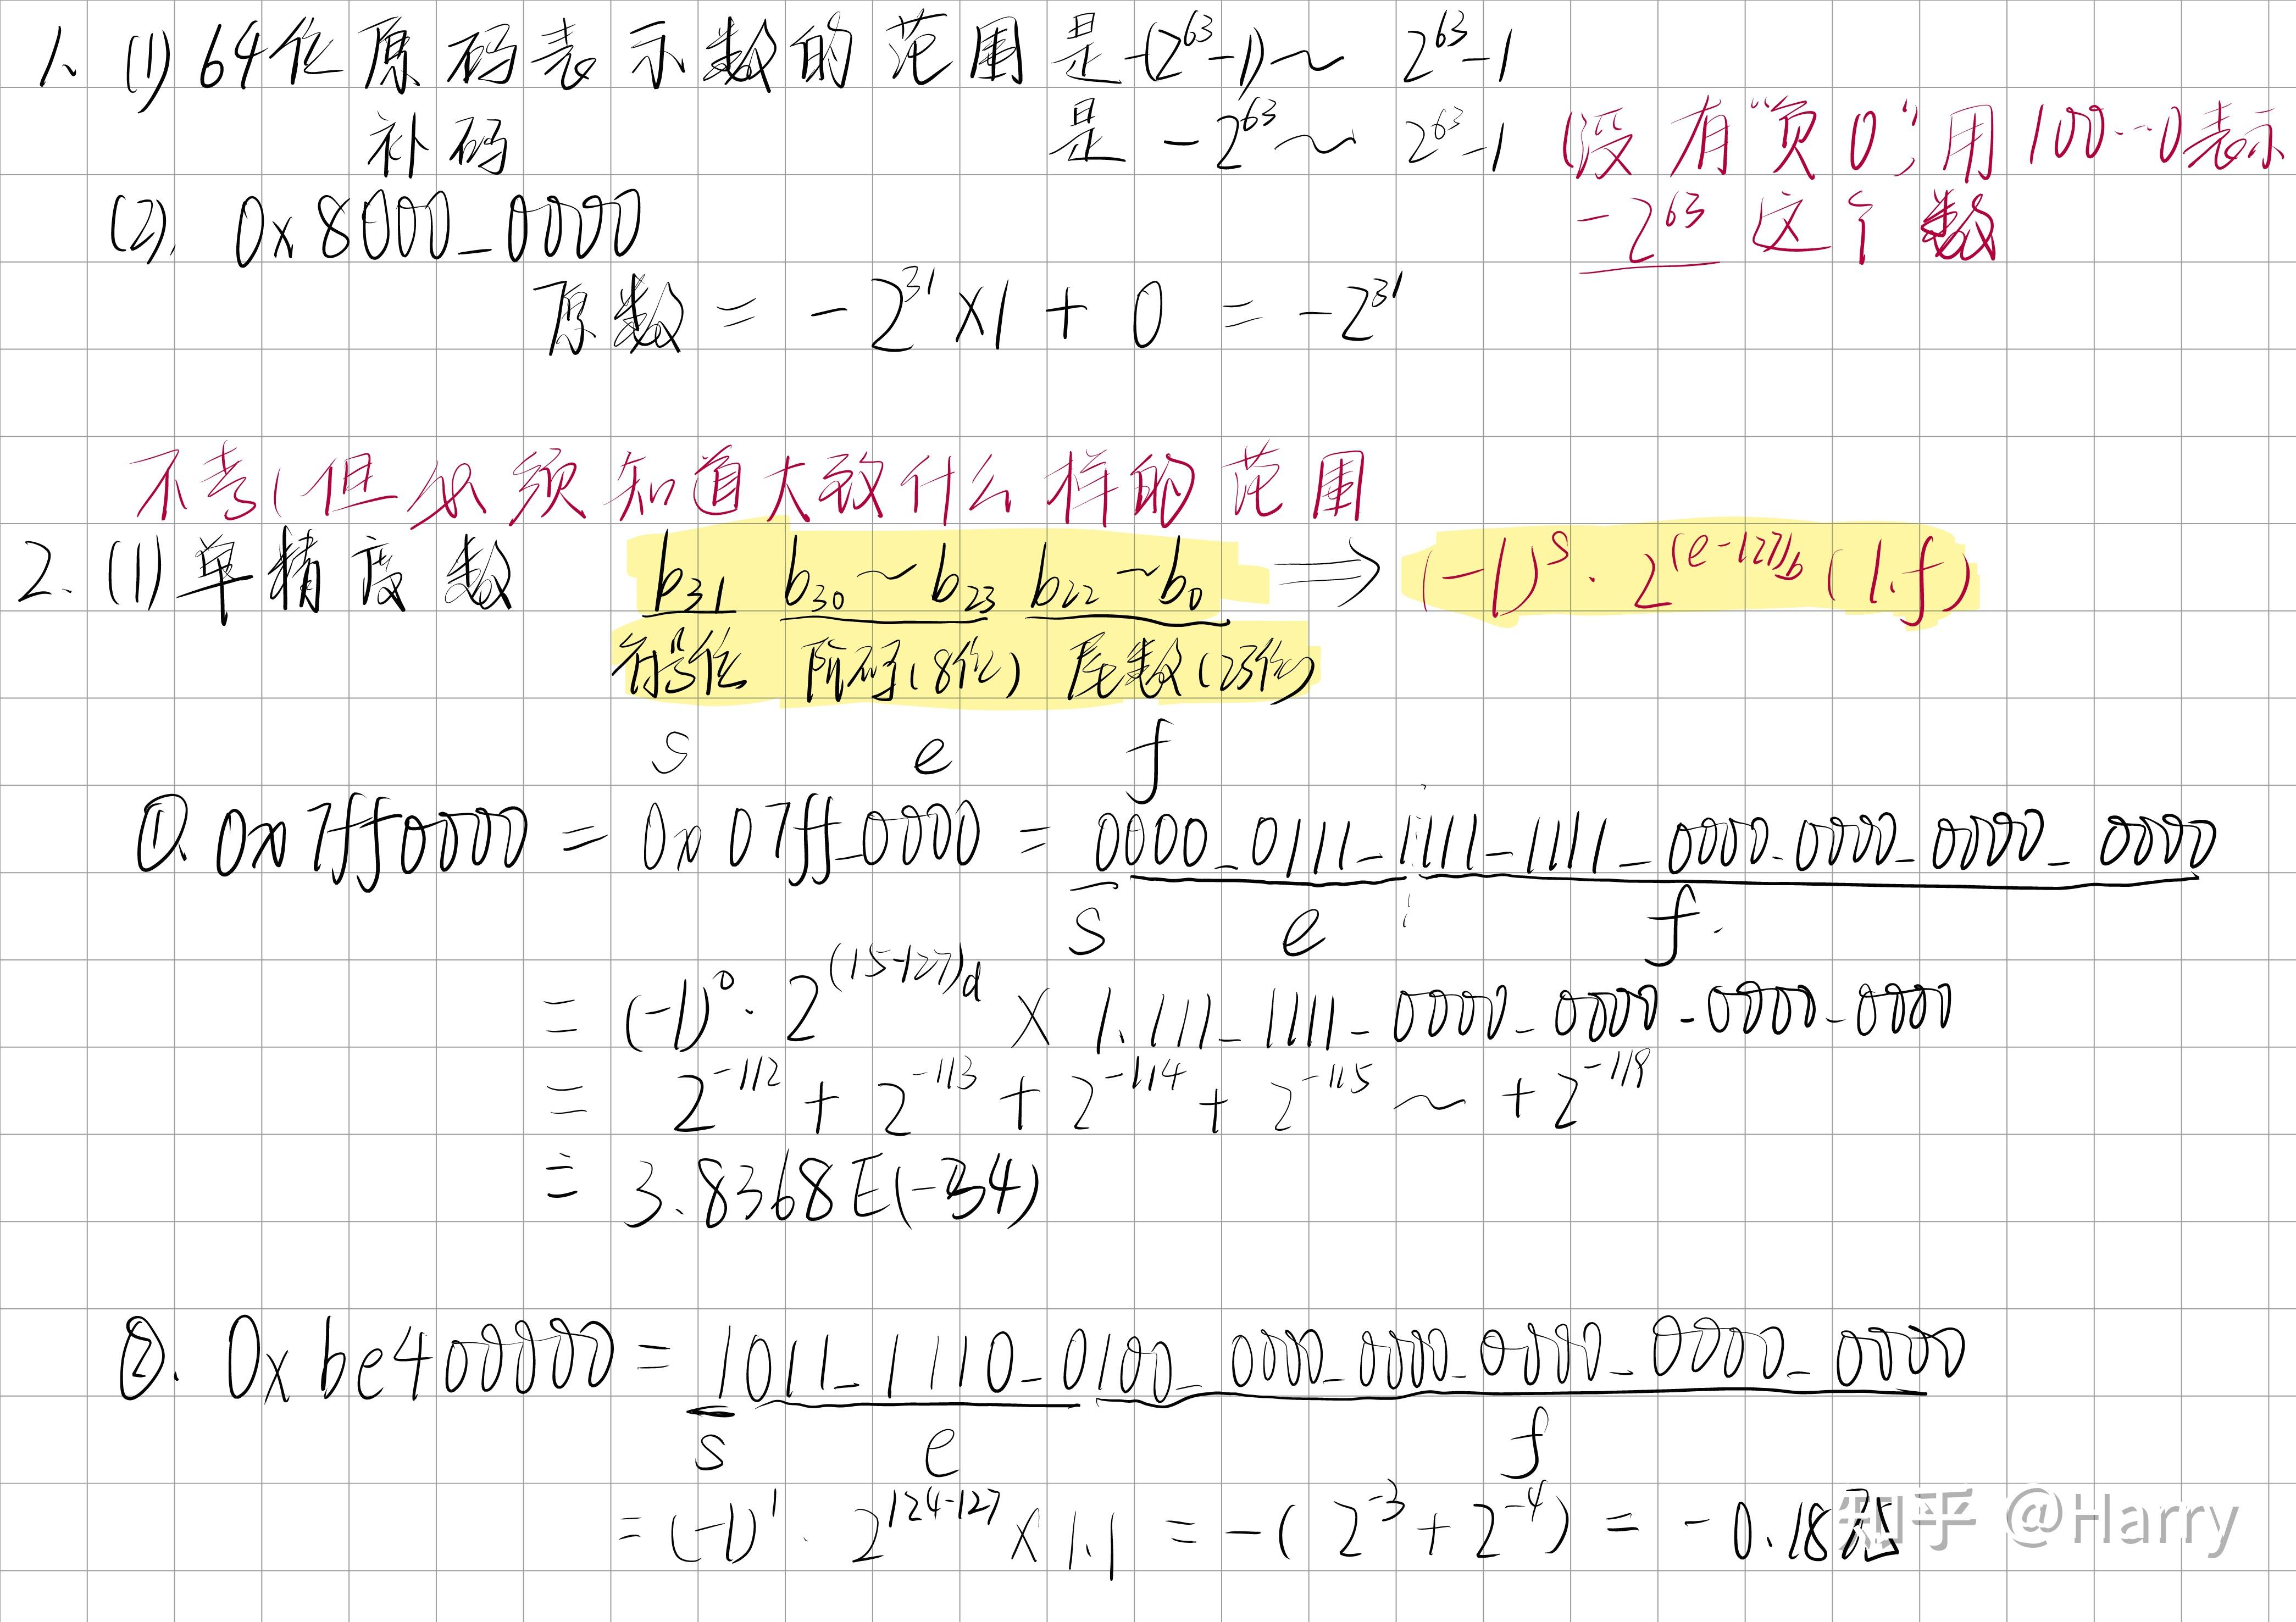 1、(1) 64位原码表示数的范围是-(2^63-1)～ 2^63-1
补码 是 -2^63～ 2^63-1 (没有“负0”,用100…0表示
-2^63 这个数
(2). 0x8000_0000
原数 = -2^31×1 + 0 = -2^31
不考(但必须知道大致什么样的范围
2.(1)单精度数 b31 b30～b23 b22～b0 ⟹ (-1)^s · 2^(e-127)b (1.f)
符号位 阶码(8位) 尾数(23位)
s e f
①. 0x7ff0000 = 0x07ff_0000 = 0000_0111_1111_1111_0000_0000_0000_0000
s e f.
= (-1)^0 · 2^(15-127)d × 1.111_1111_0000_0000_0000_0000
= 2^-112 + 2^-113 + 2^-114 + 2^-115 ～ + 2^-119
= 3.8368E(-34)
②. 0xbe400000 = 1011_1110_0100_0000_0000_0000_0000_0000
s e f
= (-1)^1 · 2^124-127 × 1.1 = -(2^-3 + 2^-4) = -0.1875
知乎 @Harry